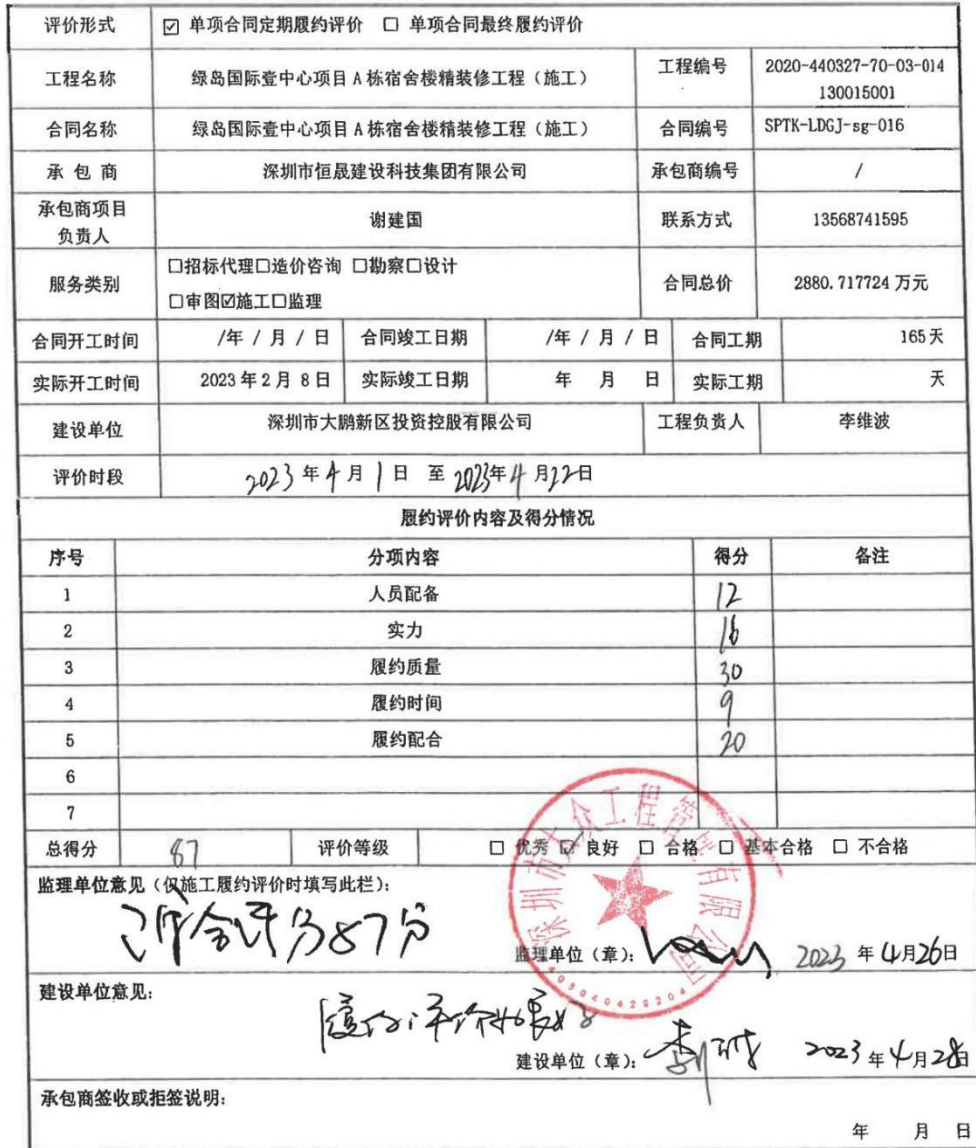 评价形式 ☑ 单项合同定期履约评价 □ 单项合同最终履约评价
工程名称 绿岛国际壹中心项目 A 栋宿舍楼精装修工程（施工） 工程编号 2020-440327-70-03-014
130015001
合同名称 绿岛国际壹中心项目 A 栋宿舍楼精装修工程（施工） 合同编号 SPTK-LDGJ-sg-016
承 包 商 深圳市恒晟建设科技集团有限公司 承包商编号 /
承包商项目
负责人 谢建国 联系方式 13568741595
服务类别 □招标代理□造价咨询 □勘察□设计
□审图☑施工□监理 合同总价 2880.717724 万元
合同开工时间 /年 / 月 / 日 合同竣工日期 /年 / 月 / 日 合同工期 165 天
实际开工时间 2023 年 2 月 8 日 实际竣工日期 年 月 日 实际工期 天
建设单位 深圳市大鹏新区投资控股有限公司 工程负责人 李维波
评价时段 2023 年 4 月 1 日 至 2023年 4 月22日
履约评价内容及得分情况
序号 分项内容 得分 备注
1 人员配备 12
2 实力 16
3 履约质量 30
4 履约时间 9
5 履约配合 20
6
7
总得分 87 评价等级 □ 优秀 ☑ 良好 □ 合格 □ 基本合格 □ 不合格
监理单位意见（仅施工履约评价时填写此栏）：
评分87分
监理单位（章）： 2023 年 4月26日
深圳市大众工程管理有限公司
建设单位意见：
履约评价为良好
建设单位（章）： 2023 年 4 月 28日
承包商签收或拒签说明：
年 月 日